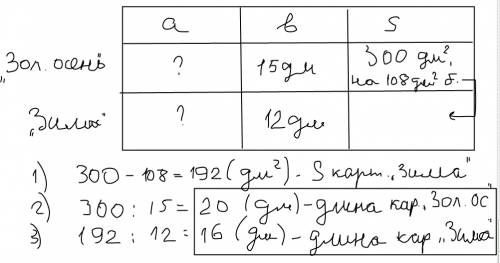 a в S
„Зол. осень" ? 15 дм 300 дм²,
на 108 дм² б.
„Зима" ? 12 дм
1) 300 - 108 = 192 (дм²) - S карт. „Зима"
2) 300 : 15 = 20 (дм) - длина кар. „Зол. ос"
3) 192 : 12 = 16 (дм) - длина кар. „Зима"